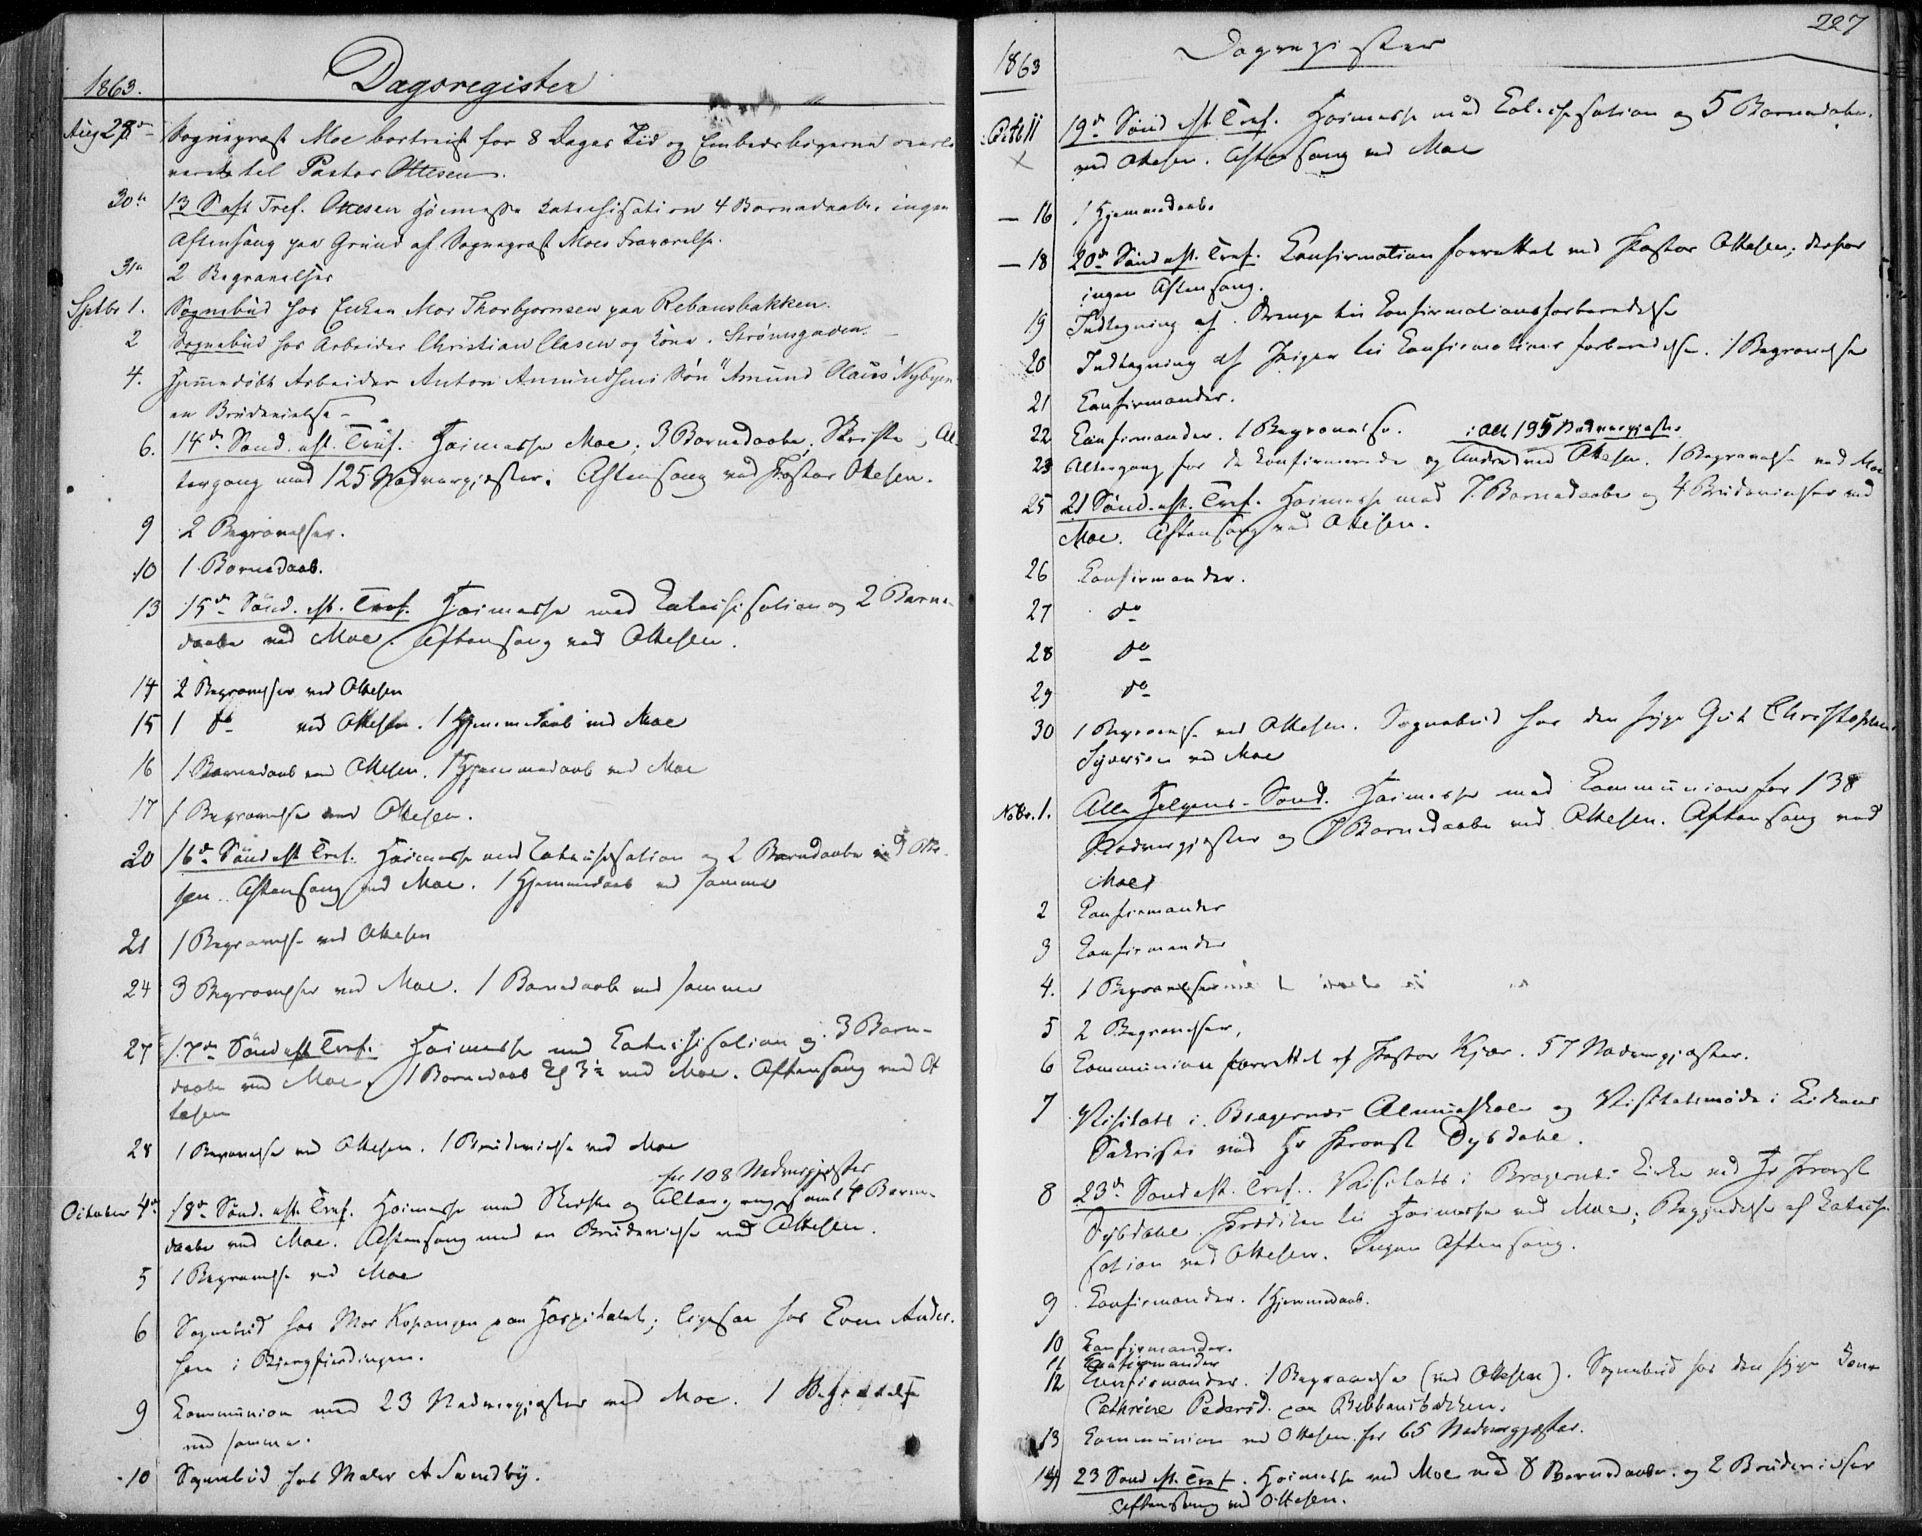 1863.
Dagsregister
Aug 28de Sognepræst Moe bortreist for 8 Dages Tid og Embedsbøgerne overle
veret til Pastor Ottesen.
30te 13 S aft Tref. Ottesen Høimesse Katechisation 4 Barnedaabe. ingen
Aftensang paa Grund af Sognepræst Moes Fraværelse.
31te 2 Begravelser
Sptbr 1. Sognebud hos Enken Mor Thorbjørnsen paa Rebansbakken.
2 Sognebud hos Arbeider Christian Clasen og Kone. Strømsgaden.
4. Hjemmedøbt Arbeider Anton Amundsens Søn "Amund Olaus" Nybyen
en Brudevielse
6. 14de Sønd. eft. Tref. Høimesse Moe; 3 Barnedaabe, Skrifte, Al
tergang med 125 Nadvergjæster. Aftensang ved Pastor Ottesen.
9 2 Begravelser.
10 1 Barnedaab.
13 15de Sønd. eft. Tref. Høimesse med Catechisation og 2 Barne-
daabe ved Moe. Aftensang ved Ottesen.
14 2 Begravelser ved Ottesen
15 1 do ved Ottesen. 1 Hjemmedaab ved Moe
16 1 Barnedaab ved Ottesen. 1 Hjemmedaab ved Moe
17 1 Begravelse ved Ottesen.
20 16de Sønd eft Tref. Høimesse med Catechisation og 2 Barnedaabe ved Otte-
sen. Aftensang ved Moe. 1 Hjemmedaab ved samme
21 1 Begravelse ved Ottesen
24 3 Begravelser ved Moe. 1 Barnedaab ved samme
27 17de Sønd eft Tref. Høimesse med Catechisation og 3 Barne-
daabe ved Moe. 1 Barnedaab Kl 3½ ved Moe. Aftensang ved Ot
tesen
28 1 Begravelse ved Ottesen. 1 Brudevielse ved Moe
for 108 Nadvergjæster
October 4de 18de Sønd. eft. Tref. Høimesse med Skrifte og Altergang samt 4 Barne-
daabe ved Moe. Aftensang med en Brudevielse ved Ottesen.
5 1 Begravelse ved Moe
6 Sognebud hos Mor Kopangen paa Hospitalet; ligesaa hos Even Ander-
sen i Bjergfjerdingen.
9 Communion med 23 Nadvergjæster ved Moe. 1
ved samme.
10 Sognebud hos Maler A Sundby.
227
1863
Dagregister
Octb 11 19de Sønd eft Tref. Høimesse med Catechisation og 5 Barnedaabe.
ved Ottesen. Aftensang ved Moe
— 16 1 Hjemmedaab.
— 18 20de Sønd eft. Tref. Confirmation forrettet ved Pastor Ottesen; derfor
ingen Aftensang.
19 Indtegning af Drenge til Confirmationsforberedelse
20 Indtegning af Piger til Confirmations forberedelse. 1 Begravelse
21 Confirmander.
22 Confirmander. 1 Begravelse. i alt 195 Nadvergjæster.
23 Altergang for de Confirmerede og Andre ved Ottesen. 1 Begravelse ved Moe
25 21 Sønd. eft. Tref. Høimesse med 7 Barnedaabe og 4 Brudevielser ved
Moe. Aftensang ved Ottesen.
26 Confirmander.
27 do
28 do
29 do
30 1 Begravelse ved Ottesen. Sognebud hos den syge Gut Christopher
Syversen ved Moe
Novbr. 1. Alle Helgens-Sønd. Høimesse med Communion for 138
Nadvergjæster og 7 Barnedaabe ved Ottesen. Aftensang ved
Moe
2 Confirmander
3 Confirmander
4. 1 Begravelse
5 2 Begravelser,
6 Communion forrettet af Pastor Kjær. 57 Nadvergjæster.
7 Visitats i Bragernes Almueskole og Visitatsmøde i Kirkens
Sakristi ved Hr Provst Dybdahl.
8 23de Sønd eft. Tref. Visitats i Bragernes Kirke ved Hr Provst
Dybdahl. Prædiken til Høimesse ved Moe; Begyndelse af Catechi
sation ved Ottesen. Ingen Aftensang.
9 Confirmander. 1 Hjemmedaab.
10 Confirmander.
11 Confirmander
12 Confirmander. 1 Begravelse (ved Ottesen). Sognebud hos den syge Kone
Cathrine Pedersd. paa Bibbansbakken.
13 Communion ved Ottesen for 65 Nadvergjæster.
14 23 Sønd eft. Tref. Høimesse ved Moe med 8 Barnedaabe. og 2 Brudevielser
Aftensang ved Ottesen.